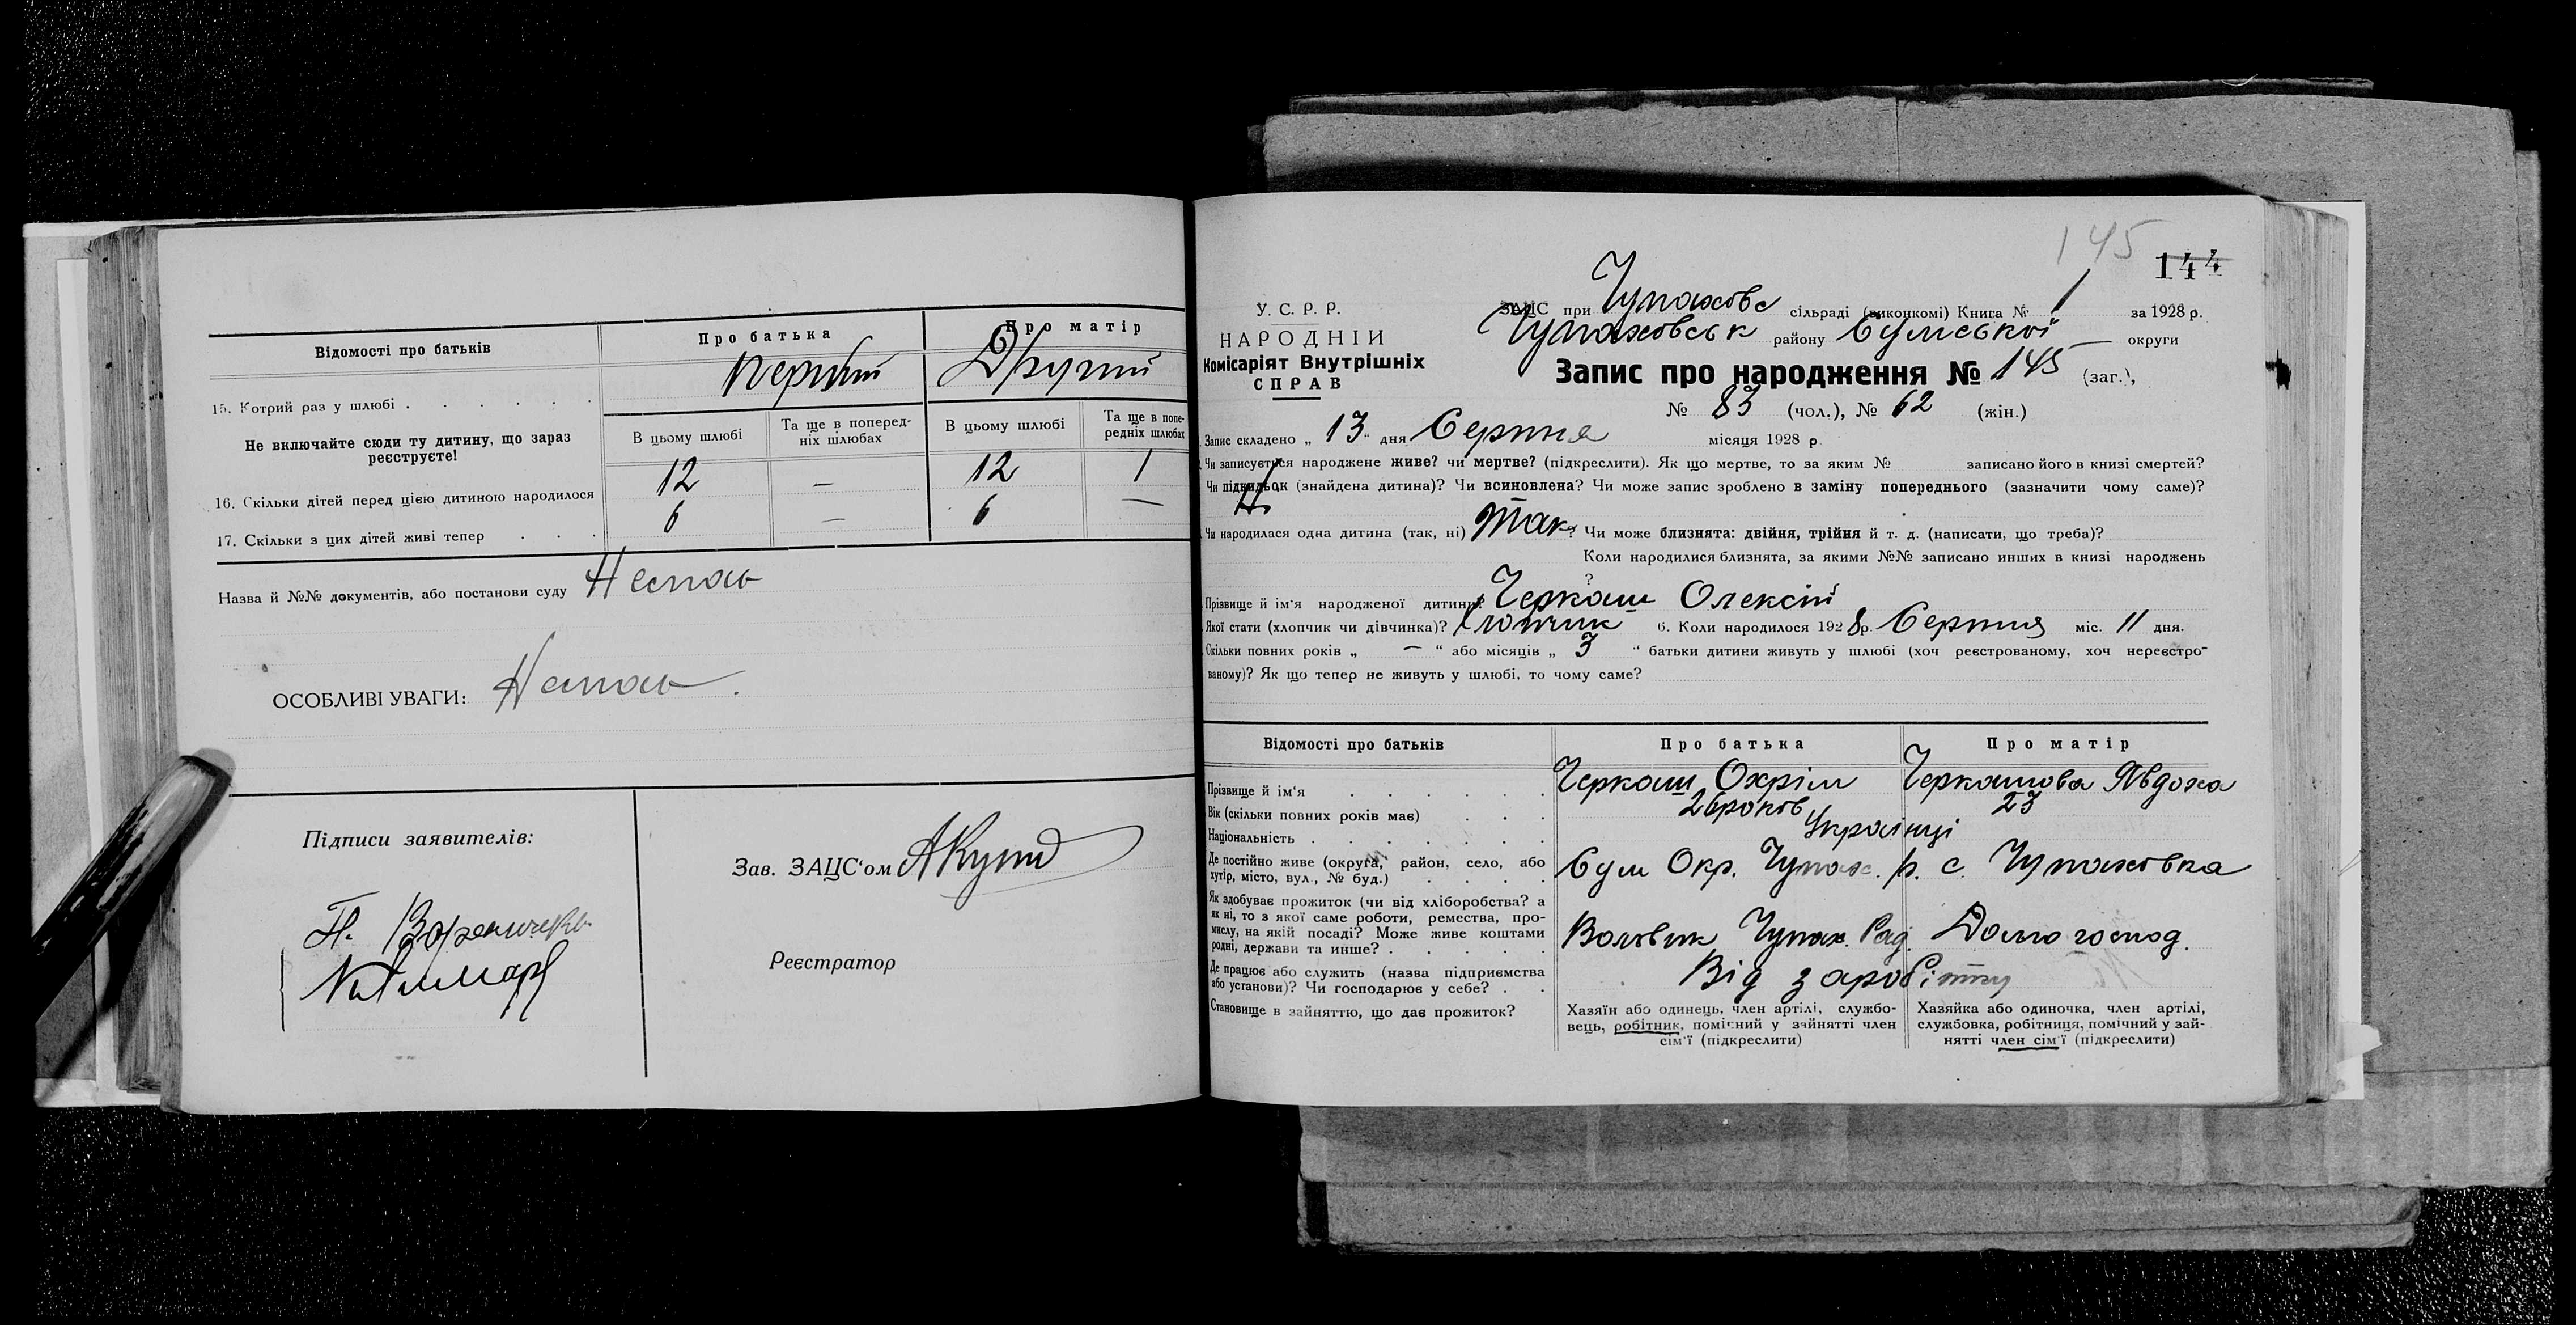 Відомості про батьків
Про батька
Про матір
15. Котрий раз у шлюбі . . . . . .
Перший
Другий
Не включайте сюди ту дитину, що зараз
реєструєте!
В цьому шлюбі
Та ще в поперед-
ніх шлюбах
В цьому шлюбі
Та ще в попе-
редніх шлюбах
16. Скільки дітей перед цією дитиною народилося
12 — 12 1
17. Скільки з цих дітей живі тепер . . .
6 — 6 —
Назва й №№ документів, або постанови суду Немає
ОСОБЛИВІ УВАГИ: Немає.
Підписи заявителів:
Зав. ЗАЦС'ом
Реєстратор
145
144
У. С. Р. Р.
НАРОДНІЙ
Комісаріят Внутрішніх
СПРАВ
ЗАЦС при Чупахове сільраді (виконкомі) Книга № 1 за 1928 р.
Чупаховськ району Сумської округи
Запис про народження № 145 (заг.),
№ 83 (чол.), № 62 (жін.)
Запис складено „ 13 “ дня Серпня місяця 1928 р
Чи записується народжене живе? чи мертве? (підкреслити). Як що мертве, то за яким № записано його в книзі смертей?
Чи підкидьок (знайдена дитина)? Чи всиновлена? Чи може запис зроблено в заміну попереднього (зазначити чому саме)?
Чи народилася одна дитина (так, ні) Так? Чи може близнята: двійня, трійня й т. д. (написати, що треба)?
Коли народилися близнята, за якими №№ записано инших в книзі народжень
?
Прізвище й ім'я народженої дитини? Черкаш Олексій
Якої стати (хлопчик чи дівчинка)? Хлопчик 6. Коли народилося 1928 р. Серпня міс. 11 дня.
Скільки повних років „ — “ або місяців „ 3 “ батьки дитини живуть у шлюбі (хоч реєстрованому, хоч нереєстро-
ваному)? Як що тепер не живуть у шлюбі, то чому саме?
Відомості про батьків
Про батька
Про матір
Прізвище й ім'я . . . . . .
Черкаш Охрім
Черкашова Явдоха
Вік (скільки повних років має) . . .
26 років
23
Національність . . . . . . .
Українці
Де постійно живе (округа, район, село, або
хутір, місто, вул., № буд.) . . . .
Сум Окр. Чупах. р. с. Чупаховка
Як здобуває прожиток (чи від хліборобства? а
як ні, то з якої саме роботи, ремества, про-
мислу, на якій посаді? Може живе коштами
родні, держави та инше? . . . . .
Воловик Чупах. Рад.
Домогоспод.
Де працює або служить (назва підприємства
або установи)? Чи господарює у себе? . .
Від заробітку
Становище в зайняттю, що дає прожиток?
Хазяїн або одинець, член артілі, службо-
вець, робітник, помічний у зайнятті член
сім'ї (підкреслити)
Хазяйка або одиночка, член артілі,
службовка, робітниця, помічний у зай-
нятті член сім'ї (підкреслити)